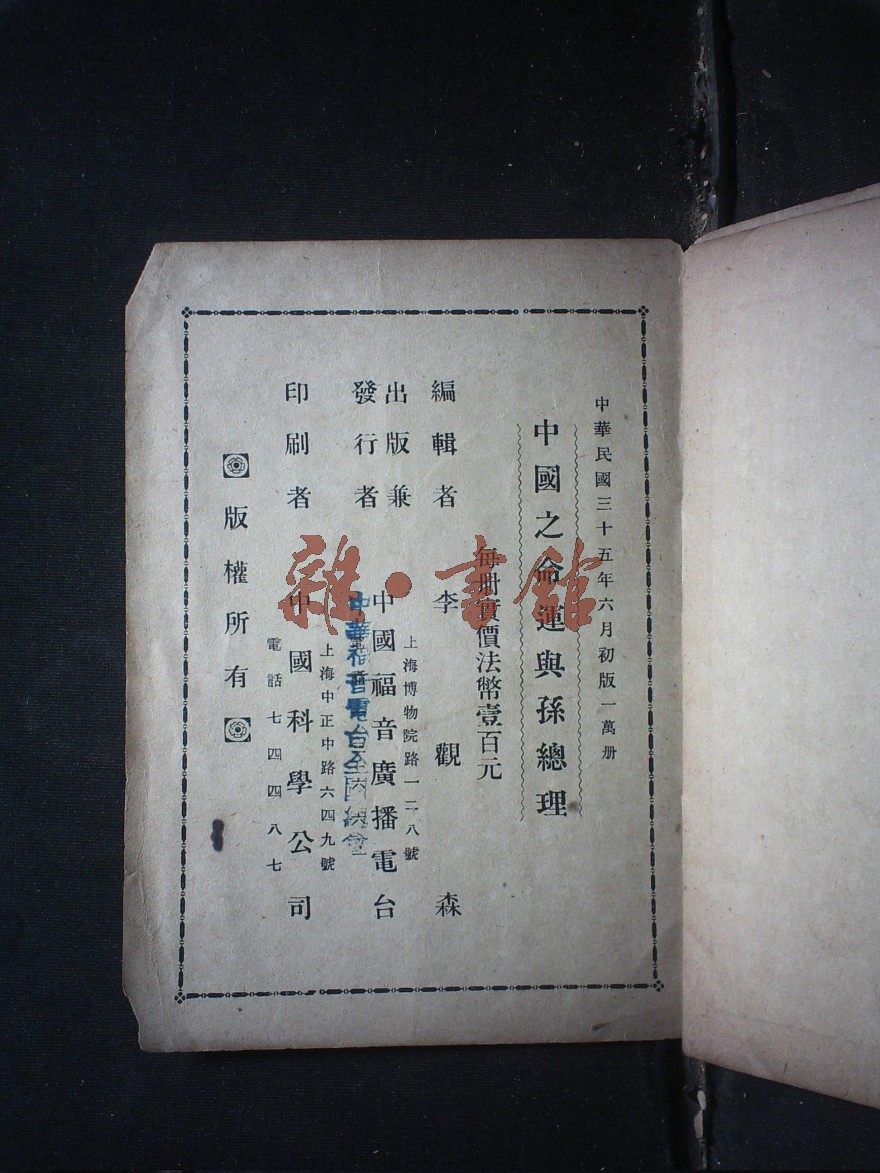 中華民國三十五年六月初版一萬册
中國之命運與孫總理
每册實價法幣壹百元
編輯者 李觀森
上海博物院路一二八號
出版兼
發行者 中國福音廣播電台
中華福音電台全國總會
上海中正中路六四九號
印刷者 中國科學公司
電話七四四八七
版權所有
雜·書館